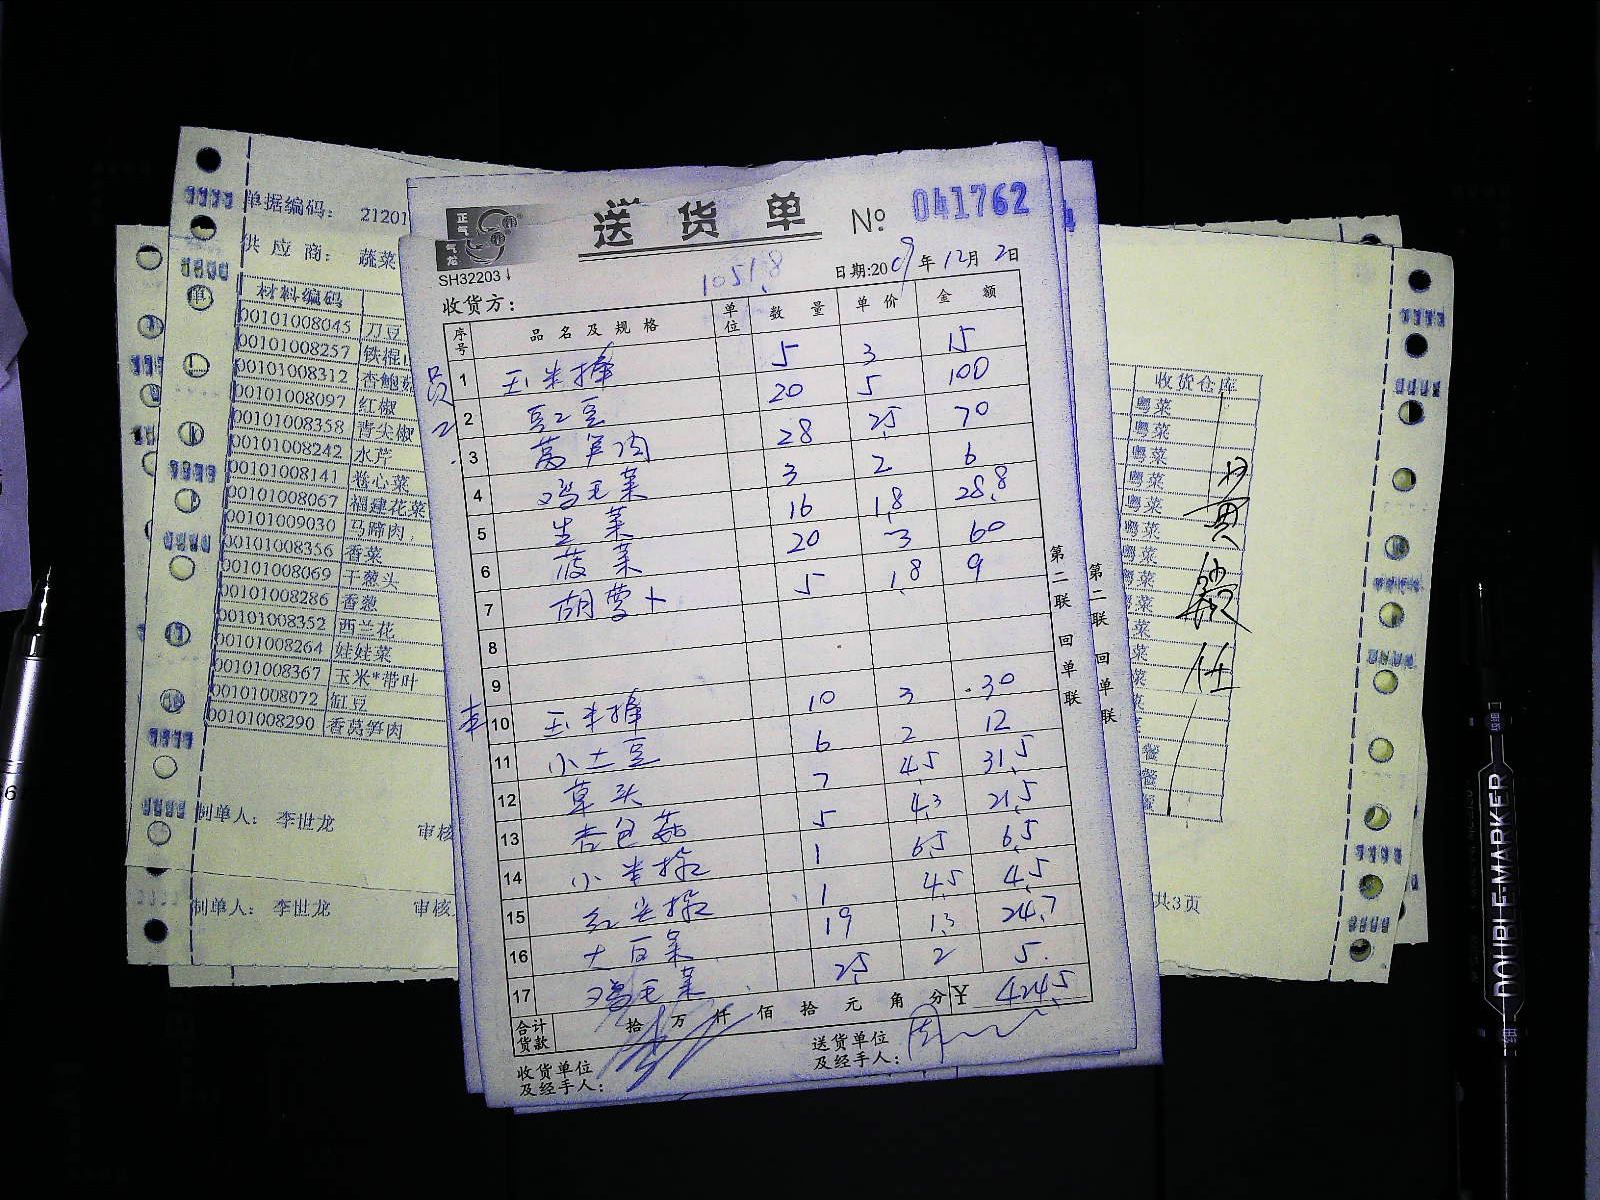 单据编码： 21201
供 应 商： 蔬菜
材料编码
00101008045 刀豆
00101008257 铁棍
00101008312 杏鲍菇
00101008097 红椒
00101008358 青尖椒
00101008242 水芹
00101008141 卷心菜
00101008067 福建花菜
00101009030 马蹄肉
00101008356 香菜
00101008069 干葱头
00101008286 香葱
00101008352 西兰花
00101008264 娃娃菜
00101008367 玉米*带叶
00101008072 缸豆
00101008290 香莴笋肉
制单人： 李世龙 审核
制单人： 李世龙 审核
送 货 单 № 041762
SH32203
1051.8
日期:2009年12月2日
收货方：
序号 品 名 及 规 格 单位 数 量 单 价 金 额
员工
1 玉米棒 5 3 15
2 豇豆 20 5 100
3 莴笋肉 28 2.5 70
4 鸡毛菜 3 2 6
5 生菜 16 1.8 28.8
6 菠菜 20 3 60
7 胡萝卜 5 1.8 9
8
9
10 玉米棒 10 3 30
11 小土豆 6 2 12
12 草头 7 4.5 31.5
13 杏包菇 5 4.3 21.5
14 小米椒 1 6.5 6.5
15 红尖椒 1 4.5 4.5
16 大白菜 19 1.3 24.7
17 鸡毛菜 2.5 2 5.
合计货款 拾 万 仟 佰 拾 元 角 分 ¥ 424.5
收货单位及经手人：
送货单位及经手人：
第二联 回单联
第二联 回单联
收货仓库
粤菜
粤菜
粤菜
粤菜
粤菜
粤菜
粤菜
粤菜
粤菜
共3页
DOUBLE MARKER